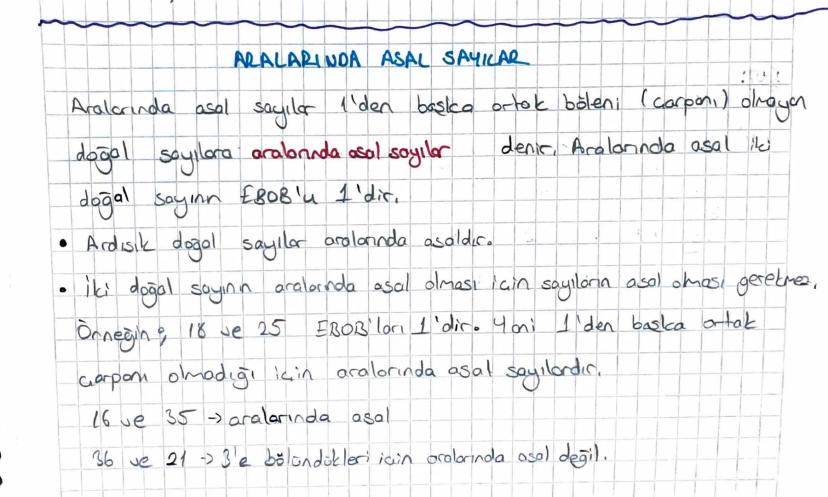 ARALARINDA ASAL SAYILAR
Aralarında asal sayılar 1'den başka ortak böleni (çarpanı) olmayan
doğal sayılara aralarında asal sayılar denir. Aralarında asal iki
doğal sayının EBOB'u 1'dir.
• Ardışık doğal sayılar aralarında asaldır.
• İki doğal sayının aralarında asal olması için sayıların asal olması gerekmez.
Örneğin; 18 ve 25 EBOB'ları 1'dir. Yani 1'den başka ortak
çarpanı olmadığı için aralarında asal sayılardır.
16 ve 35 → aralarında asal
36 ve 21 → 3'e bölündükleri için aralarında asal değil.